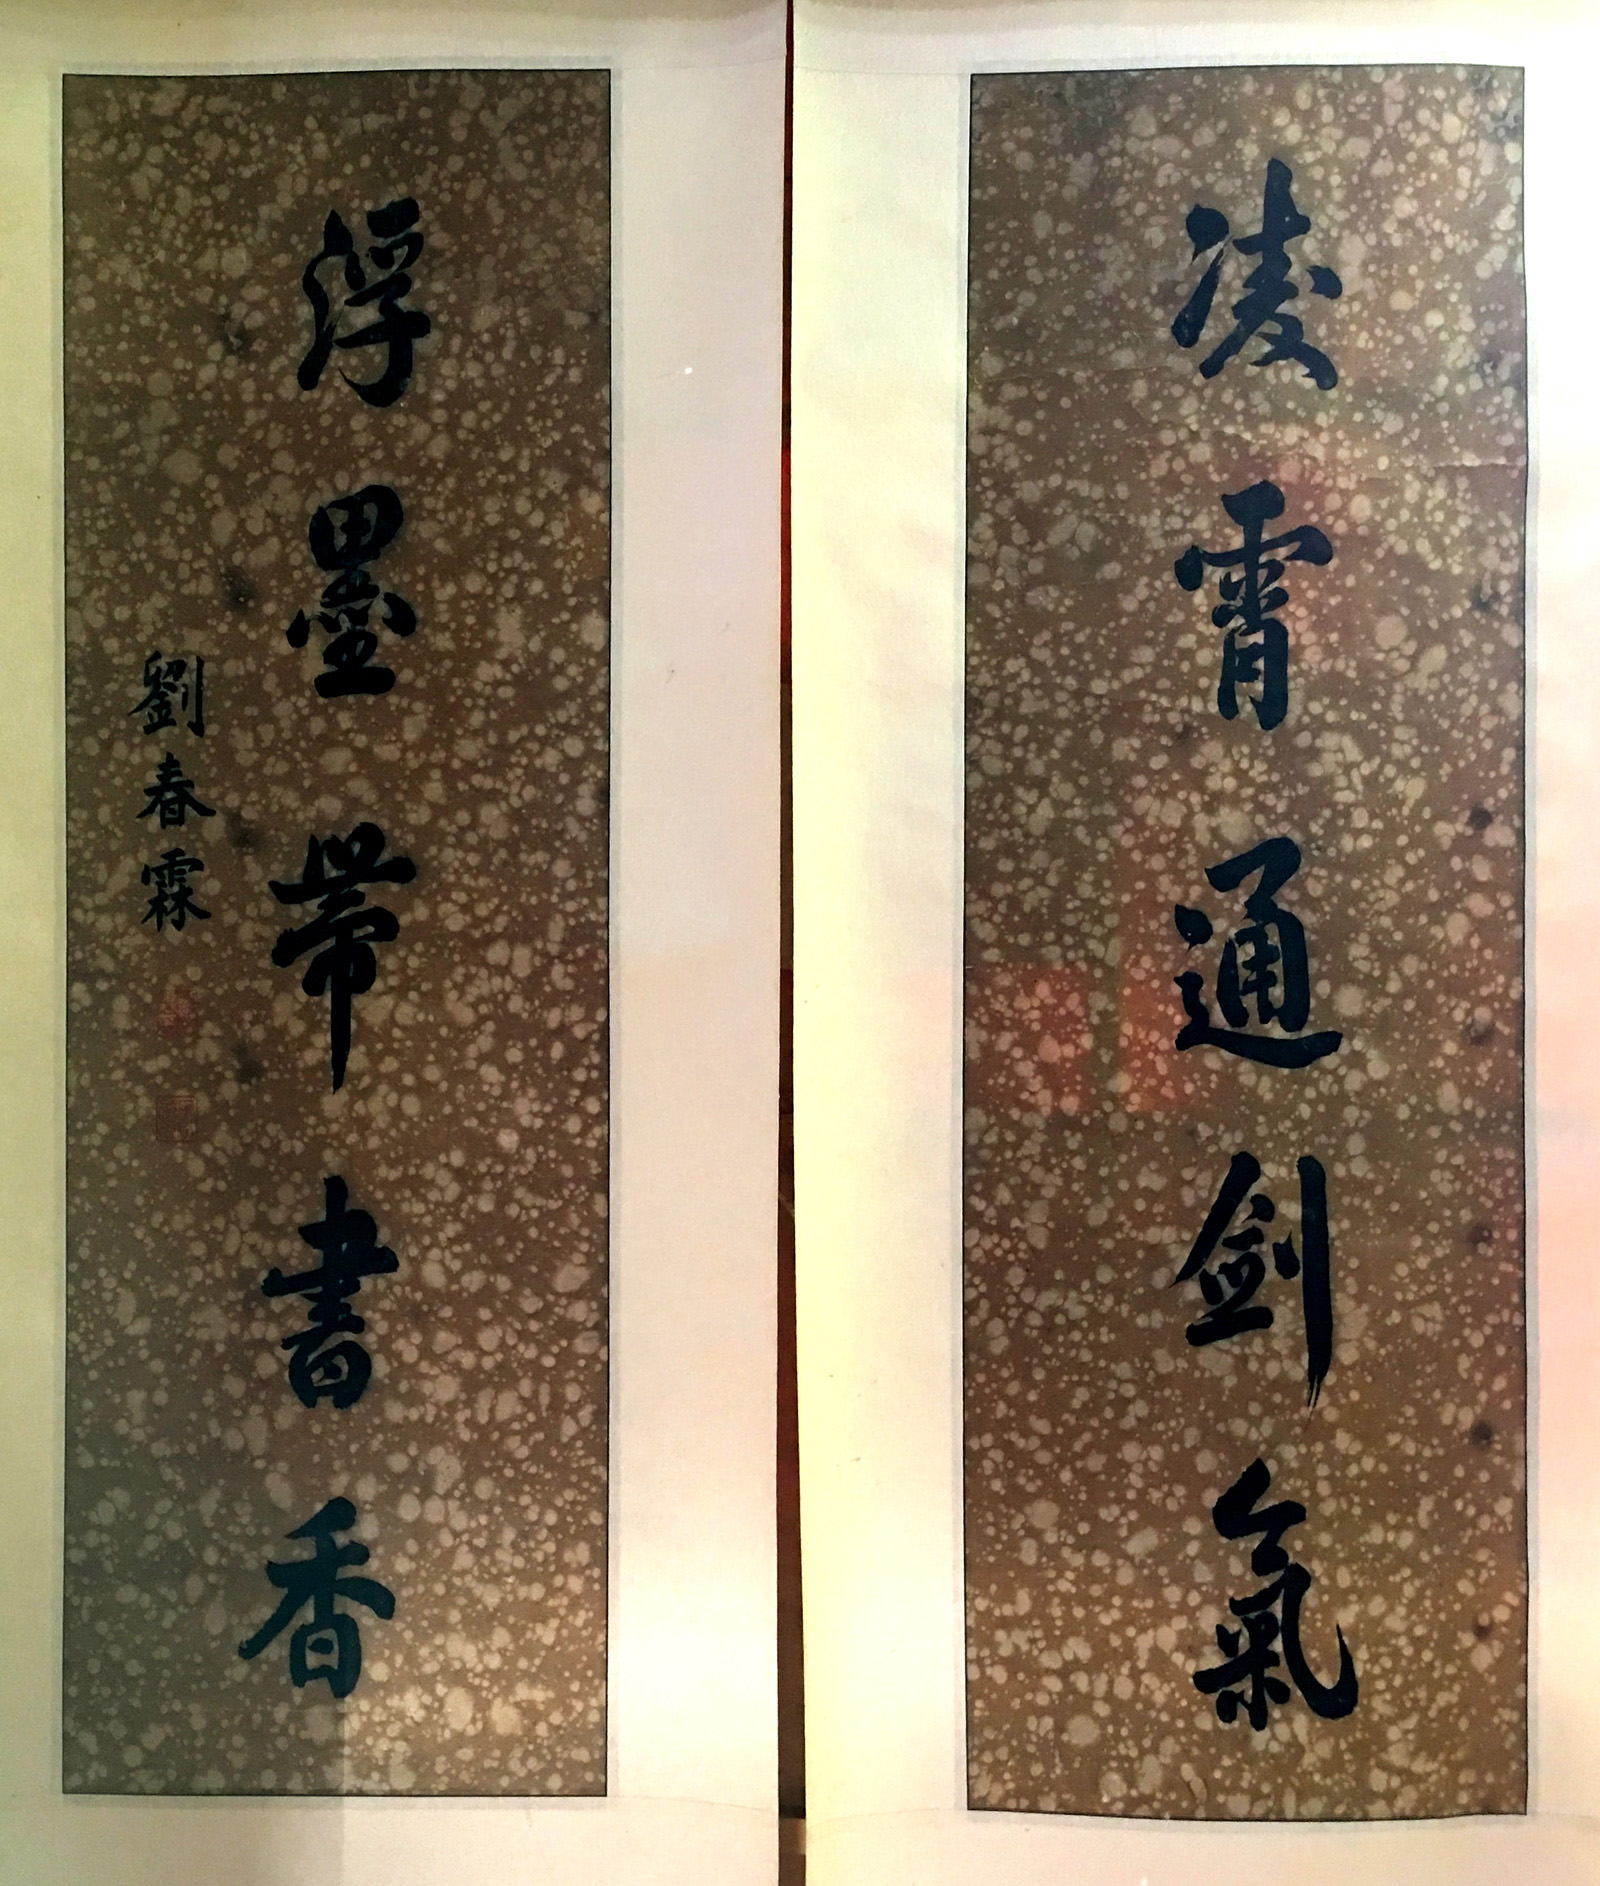 凌霄通劍氣
浮墨帶書香
劉春霖